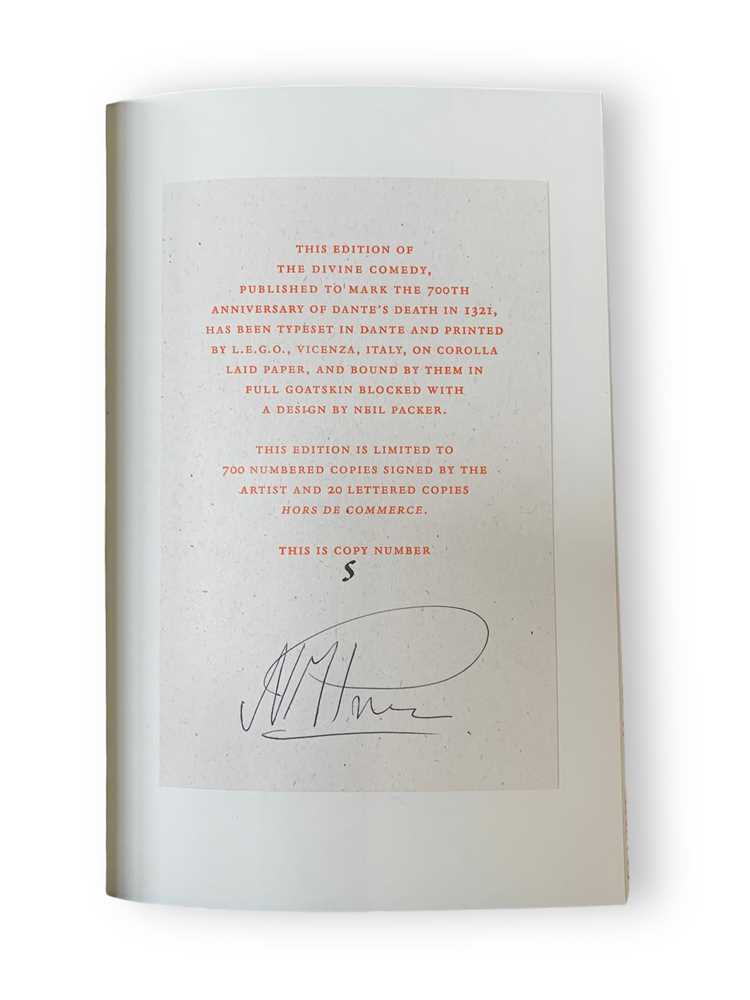 THIS EDITION OF
THE DIVINE COMEDY,
PUBLISHED TO MARK THE 700TH
ANNIVERSARY OF DANTE'S DEATH IN 1321,
HAS BEEN TYPESET IN DANTE AND PRINTED
BY L.E.G.O., VICENZA, ITALY, ON COROLLA
LAID PAPER, AND BOUND BY THEM IN
FULL GOATSKIN BLOCKED WITH
A DESIGN BY NEIL PACKER.
THIS EDITION IS LIMITED TO
700 NUMBERED COPIES SIGNED BY THE
ARTIST AND 20 LETTERED COPIES
HORS DE COMMERCE.
THIS IS COPY NUMBER
S